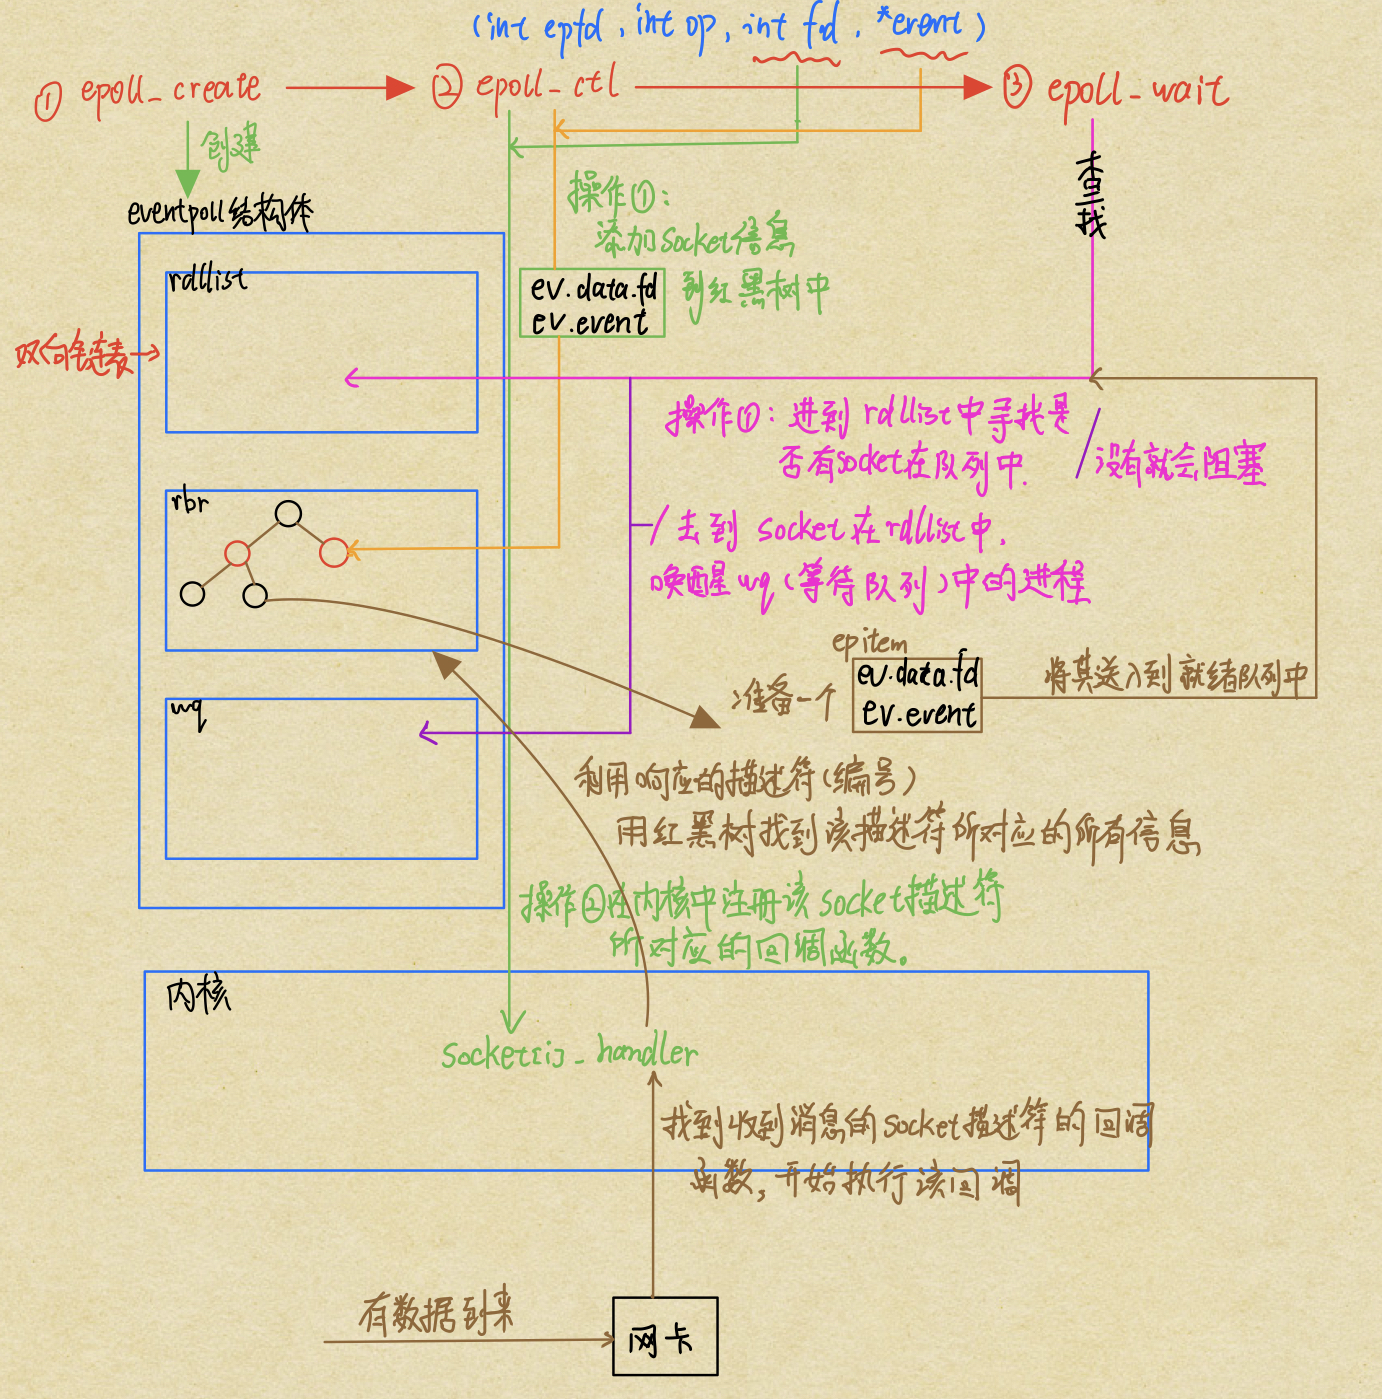 (int epfd, int op, int fd, *event)
① epoll_create
② epoll_ctl
③ epoll_wait
创建
查找
eventpoll结构体
操作①:
添加socket信息
到红黑树中
rdllist
ev.data.fd
ev.event
双向链表
操作①: 进到 rdllist中寻找是
否有socket在队列中.
没有就会阻塞
rbr
找到 socket在rdllist中,
唤醒wq(等待队列)中的进程
epitem
准备一个
ev.data.fd
ev.event
将其送入到就绪队列中
wq
利用响应的描述符(编号)
用红黑树找到该描述符所对应的所有信息
操作②在内核中注册该socket描述符
所对应的回调函数。
内核
Socket[i]_handler
找到收到消息的socket描述符的回调
函数,开始执行该回调
有数据到来
网卡